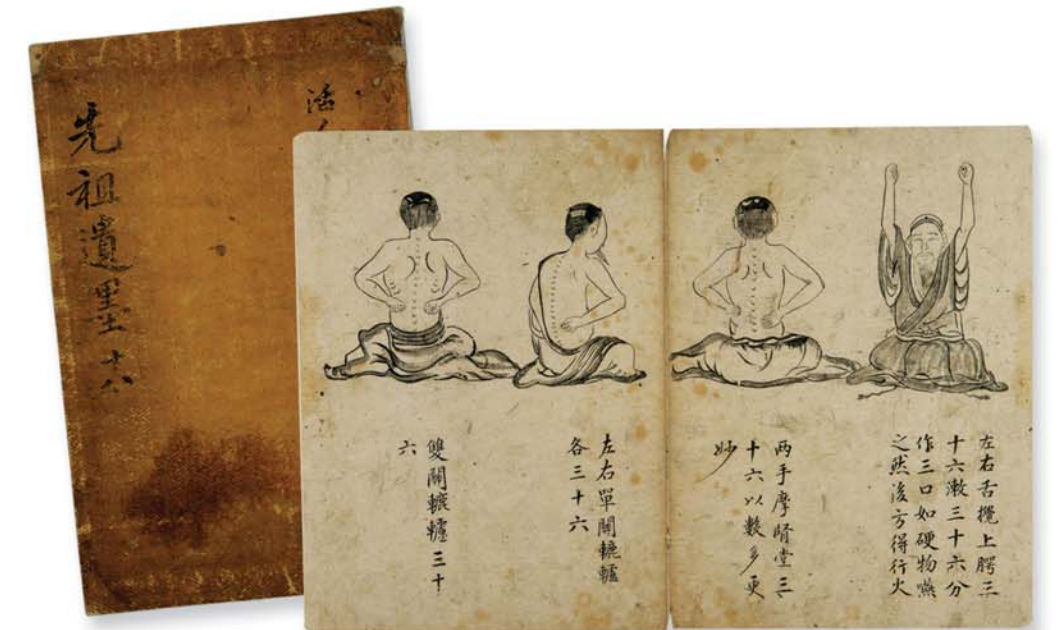 活
先祖遺墨十八
左右舌攪上腭三
十六漱三十六分
作三口如硬物嚥
之然後方得行火
两手摩腎堂三
十六以數多更
妙
左右單關轆轤
各三十六
雙關轆轤三十
六